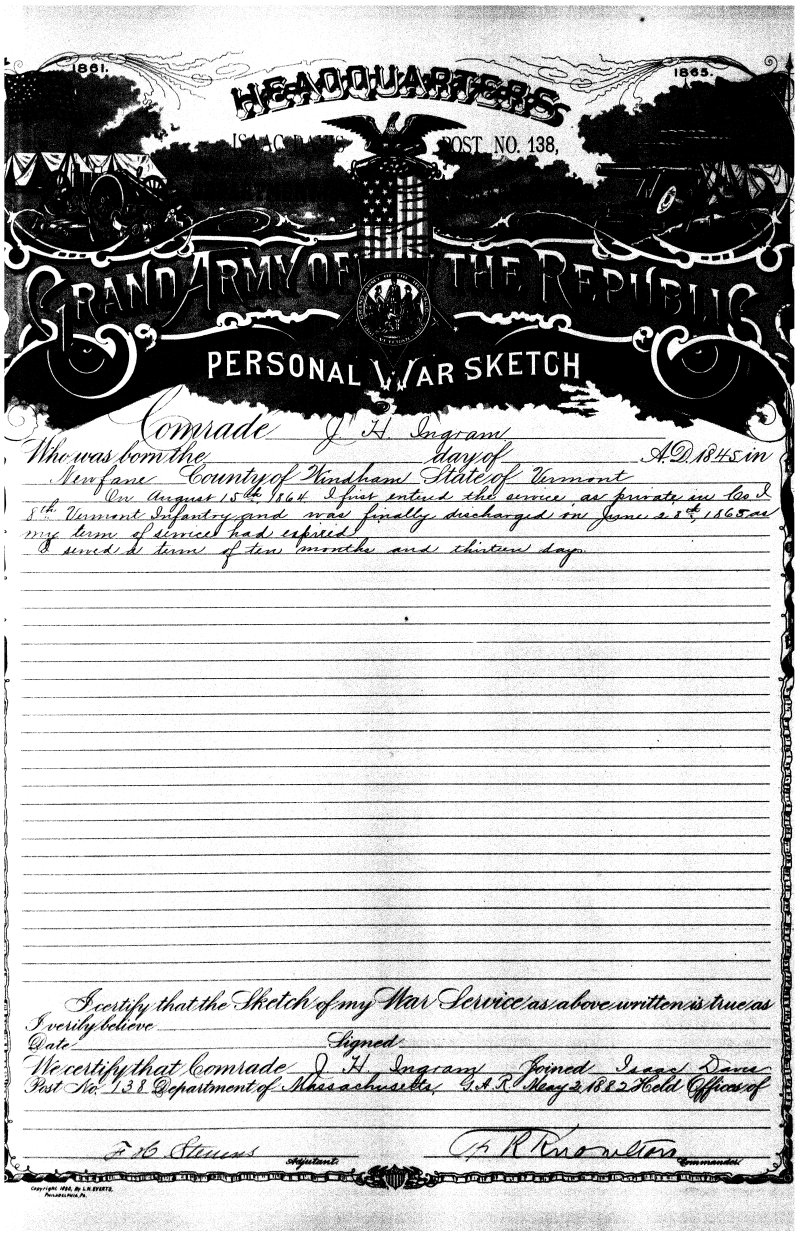 1861. 1865.
HEADQUARTERS
ISAAC DAVIS POST NO. 138,
GRAND ARMY OF THE REPUBLIC
PERSONAL WAR SKETCH
Comrade J H Ingram
Who was born the day of A.D. 1845 in
Newfane County of Windham State of Vermont
On August 15th 1864 I first entired the service as private in Co I
8th Vermont Infantry and was finally discharged on June 28th, 1865 as
my term of services had expired
I served a term of ten months and thirteen days
I certify that the Sketch of my War Service as above written is true as
I verily believe
Date Signed
We certify that Comrade J H Ingram Joined Isaac Davis
Post No. 138 Department of Massachusetts, G.A.R. May 2, 1882 Held Offices of
Stevens R Knowlton
Adjutant. Commander.
Copyright 1890, By L.H. Everts,
Philadelphia, Pa.